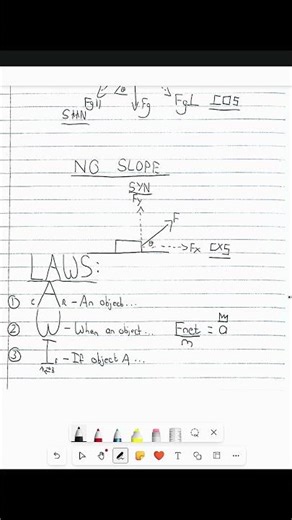 Fg|| θ Fg Fg⊥ COS
NO SLOPE
Fy
F
θ Fx
LAWS:
① A - An object...
② W - When an object...
Fnet/m = a
③ I - If object A...
T